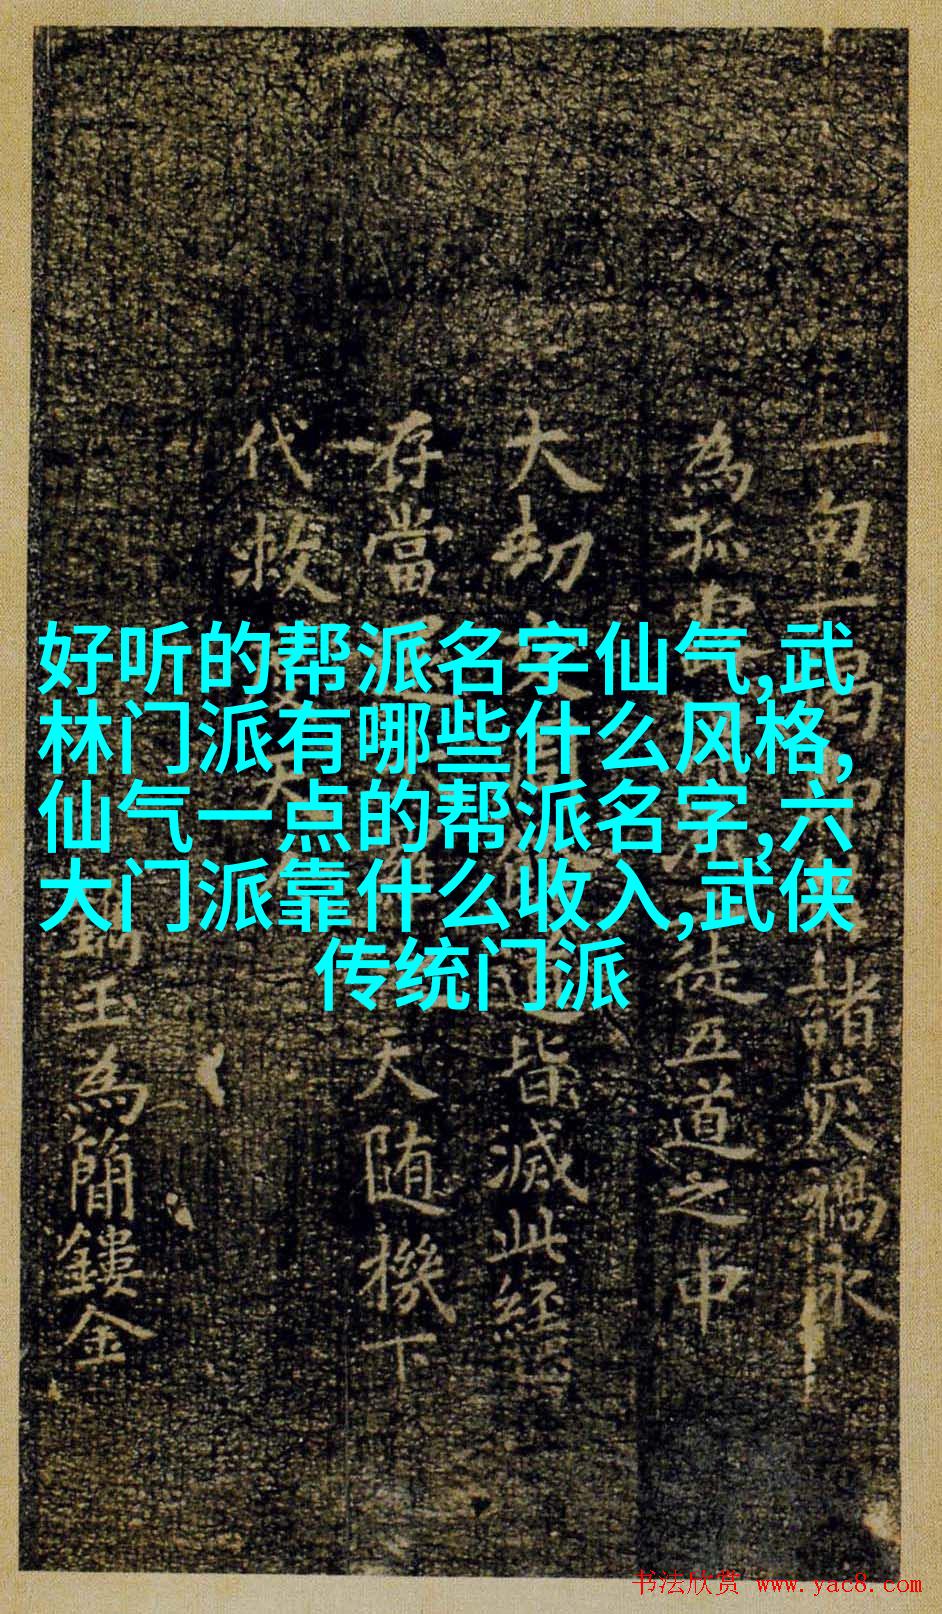 好听的帮派名字仙气,武
林门派有哪些什么风格,
仙气一点的帮派名字,六
大门派靠什么收入,武侠
传统门派
一句一 諸灾禍永
為孤 徒五道之中
大劫 皆滅此經
存當 天随機下
代救
玉為簡鏤金
书法欣赏 www.yac8.com